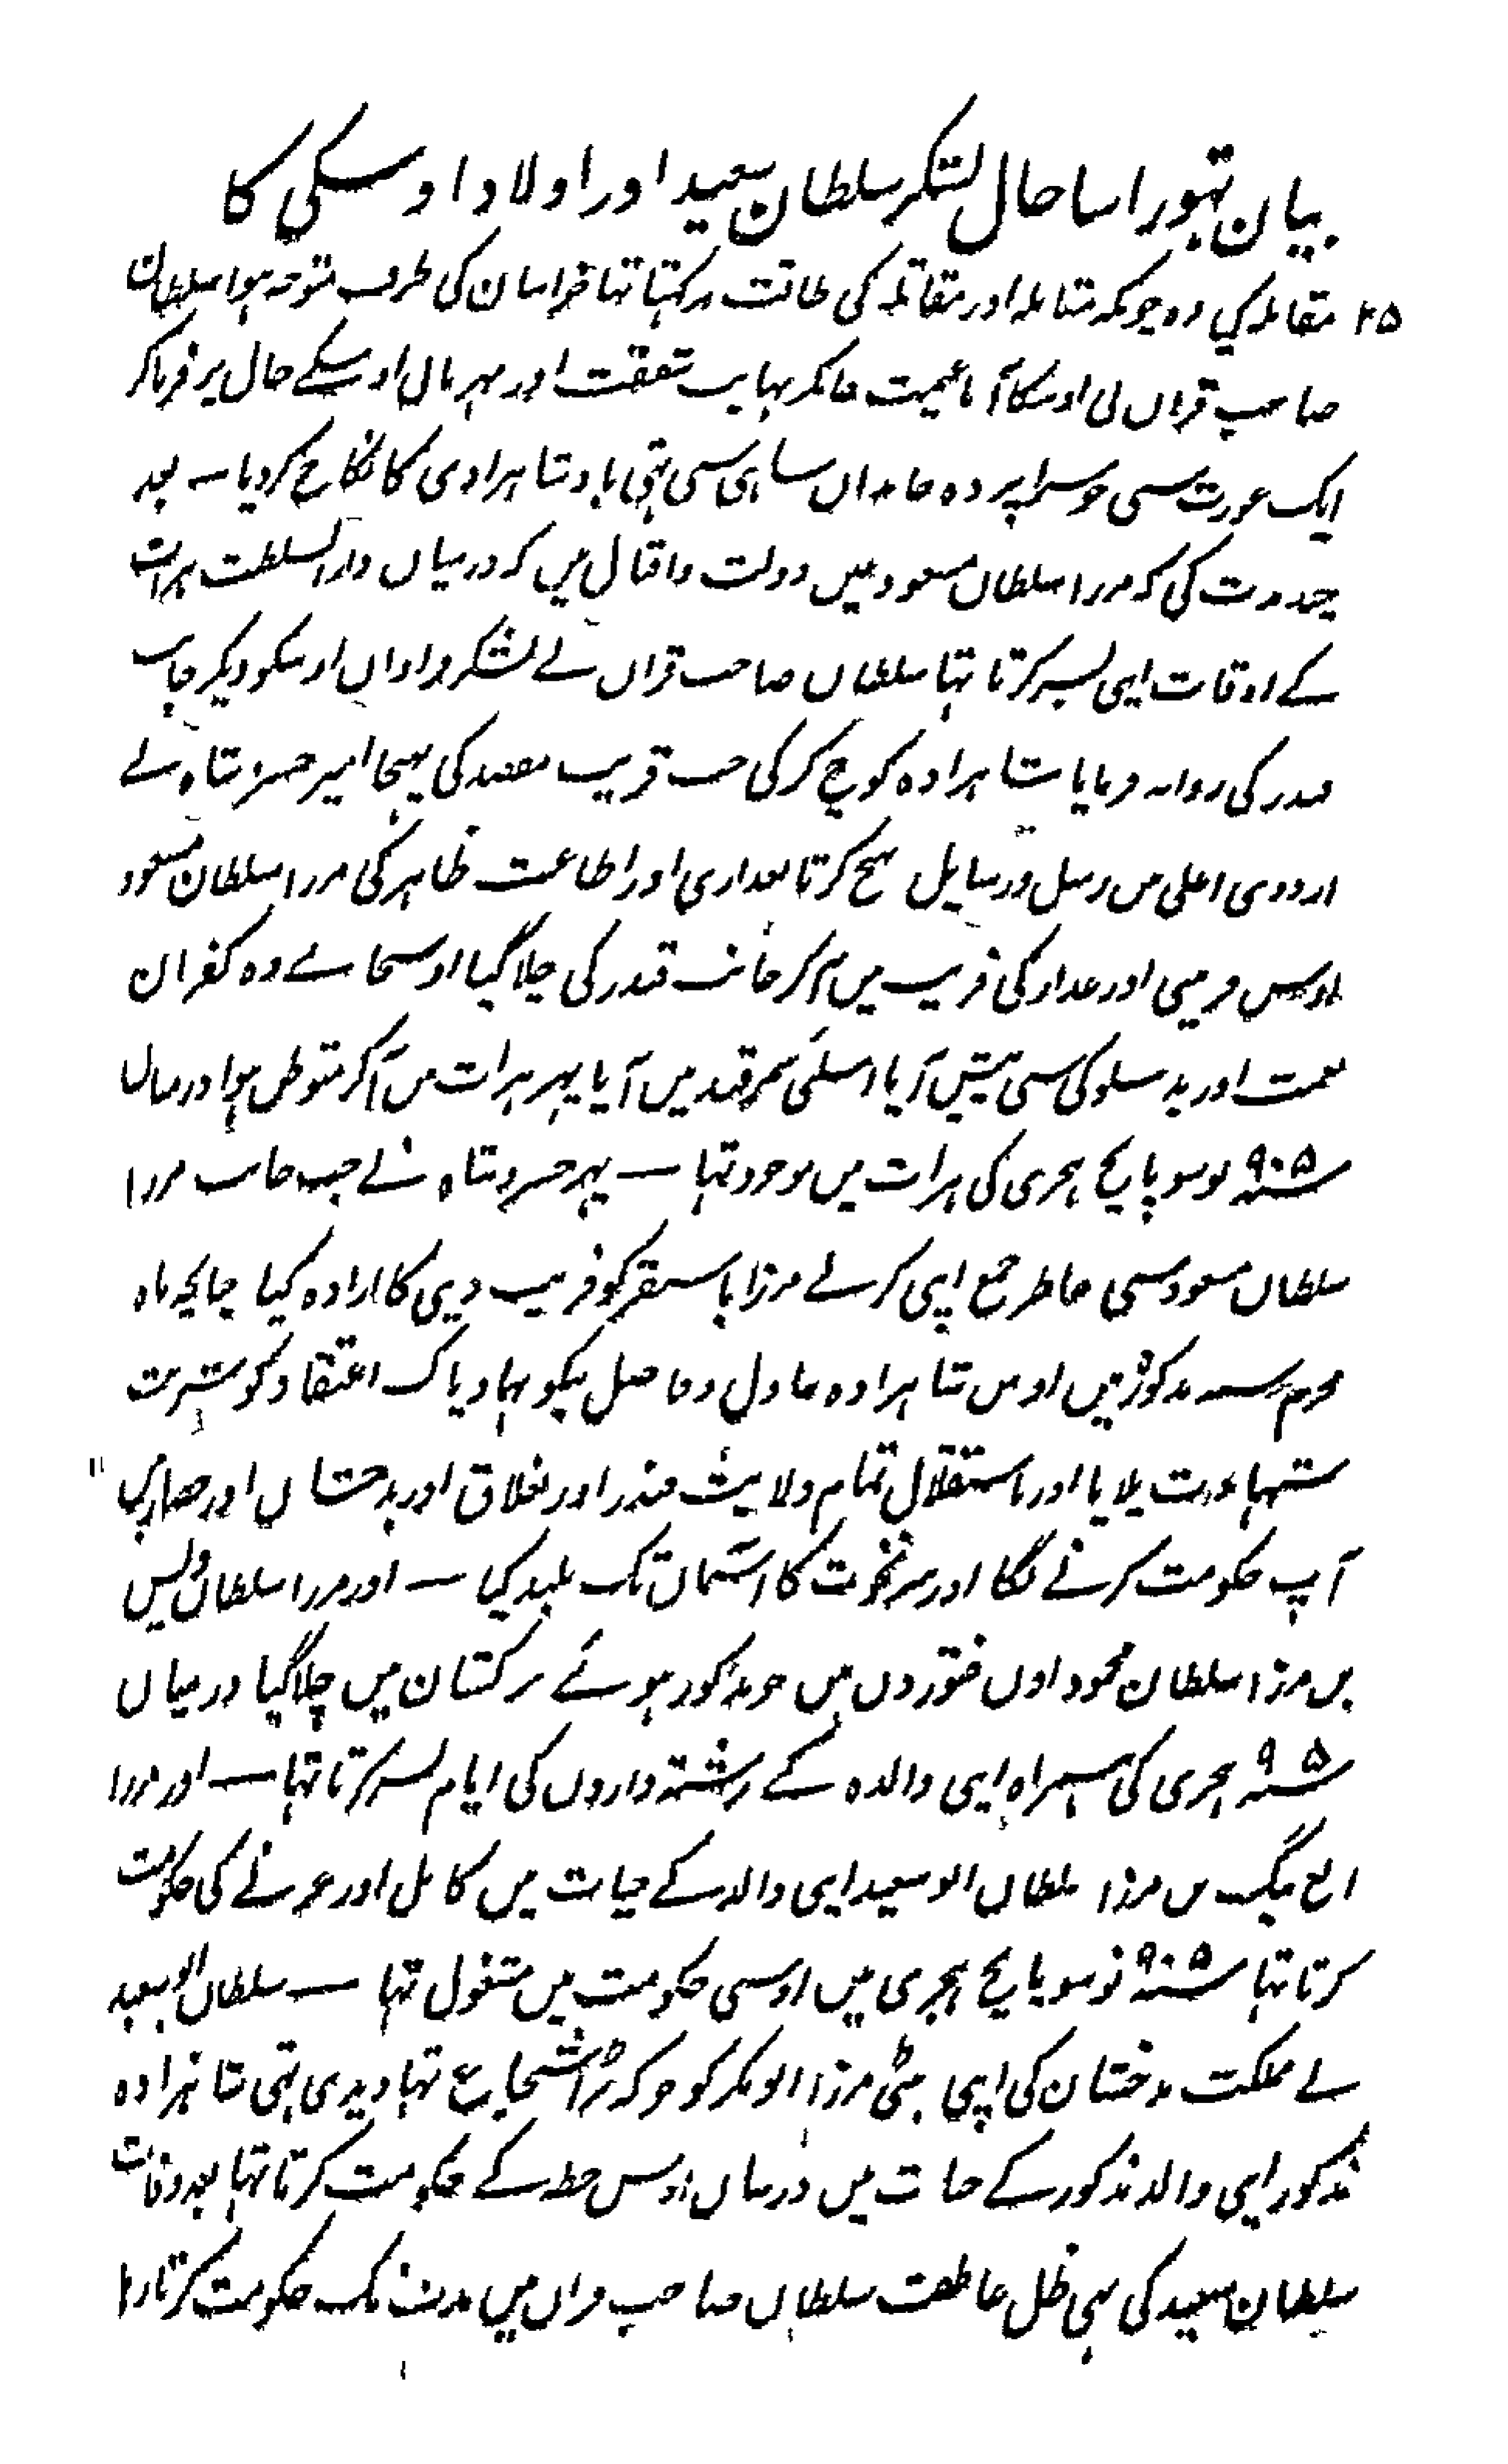 بیان تہوراسا حال لشکر سلطان سعید اور اولاد اوسکی کا
۲۵ مقابلہ کی وہ چونکہ مقابلہ اور مقاتلہ کی طاقت نرکہتا تہا خراسان کی طرف متوجہ ہوا سلطان
صاحب قران نی اوسکا آنا غنیمت جانکر نہایت شفقت اور مہربانی اوسکے حال پر فرماکر
ایک عورت سی جو سراپردہ خاندان شاہی سی تہی بادشاہزادی کا نکاح کردیا — بعد
چند مدت کی کہ مرزا سلطان مسعود عین دولت واقبال میں کہ درمیان دارالسلطنت ہرات
کے اوقات اپنی بسر کرتا تہا سلطان صاحب قران نے لشکر فراوان اوسکو دیکر جانب
قندز کی روانہ فرمایا شاہزادہ کوچ کر کی جب قریب مقصد کی پہنچا امیر خسرو شاہ نے
اردوی اعلی میں رسل ورسایل بہیج کر تابعداری اور اطاعت ظاہر کی مرزا سلطان مسعود
اوس فریبی اور غدار کی فریب میں آکر جانب قندز کی چلا گیا اوسجاے وہ کفران
نعمت اور بدسلوکی سی پیش آیا اسلئی سمرقند میں آیا پہر ہرات میں آکر متوطن ہوا درسال
سنہ ۹۰۵ نوسو پانچ ہجری کی ہرات میں موجود تہا — پہر خسرو شاہ نے جب جانب مرزا
سلطان مسعود سی خاطر جمع اپنی کرلے مرزا بایسنقر کو فریب دی کا ارادہ کیا چنانچہ ماہ
محرم سنہ مذکور میں اوس شاہزادہ عادل وفاضل نیکو نہاد پاک اعتقاد کو شربت
شہادت پلایا اور باستقلال تمام ولایت قندز اور بغلان اور بدخشان اور حصار میں
آپ حکومت کرنے لگا اور سر نخوت کا آسمان تک بلند کیا — اور مرزا سلطان ویس
بن مرزا سلطان محمود اون فتوروں میں جو مذکور ہوئے ترکستان میں چلا گیا درمیان
سنہ ۹۰۵ ہجری کی ہمراہ اپنی والدہ کے رشتہ داروں کی ایام بسر کرتا تہا — اور مرزا
الغ بیگ بن مرزا سلطان ابو سعید اپنی والد کے حیات میں کابل اور غزنے کی حکومت
کرتا تہا سنہ ۹۰۵ نوسو پانچ ہجری میں اوسی حکومت میں مشغول تہا — سلطان ابو سعید
نے مملکت بدخشان کی اپنی بیٹی مرزا ابوبکر کو جو کہ بڑا شجاع تہا دیدی تہی شاہزادہ
مذکور اپنی والد مذکور کے حیات میں درمیان اوس خطہ کے حکومت کرتا تہا بعد وفات
سلطان سعید کی بہی ظل عاطفت سلطان صاحب قران میں مدت تک حکومت کرتا رہا